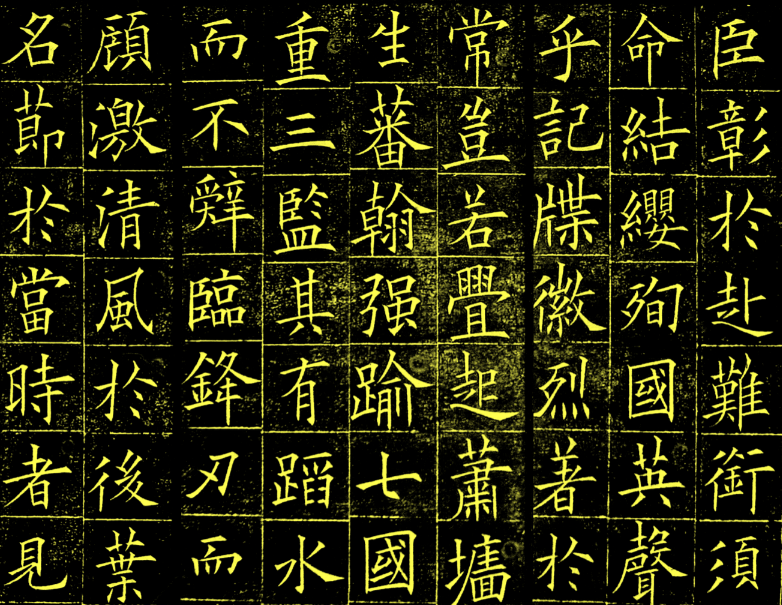 臣彰於赴難銜須
命結纓殉國英聲
乎記牒徽烈著於
常豈若舋起蕭墻
生蕃翰强踰七國
重三監其有蹈水
而不辤臨鋒刃而
顧激清風於後葉
名莭於當時者見